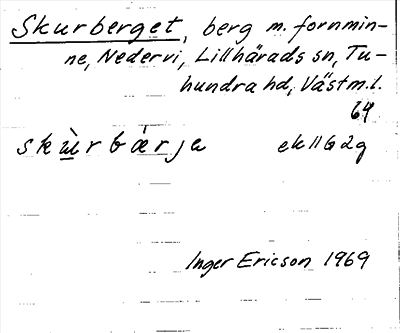 Skurberget, berg m. fornmin-
ne, Nedervi, Lillhärads sn, Tu-
hundra hd, Västm.l.
64
skùrbǽrje ek 11G 2g
Inger Ericson 1969